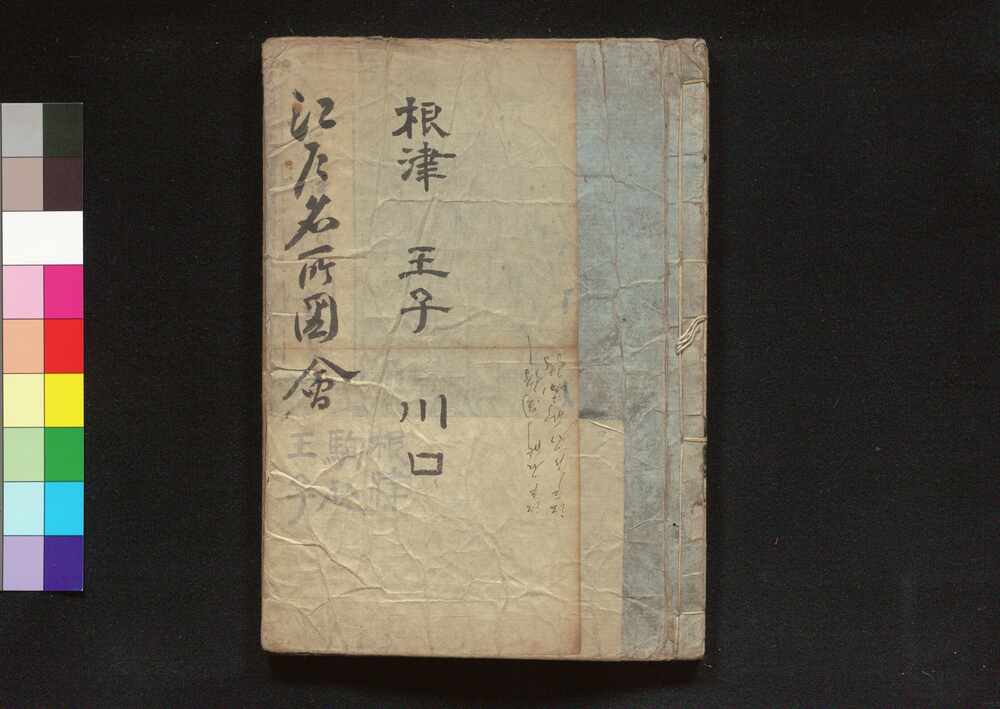 根津 王子 川口
江戸名所圖會
根津
駒込
王子